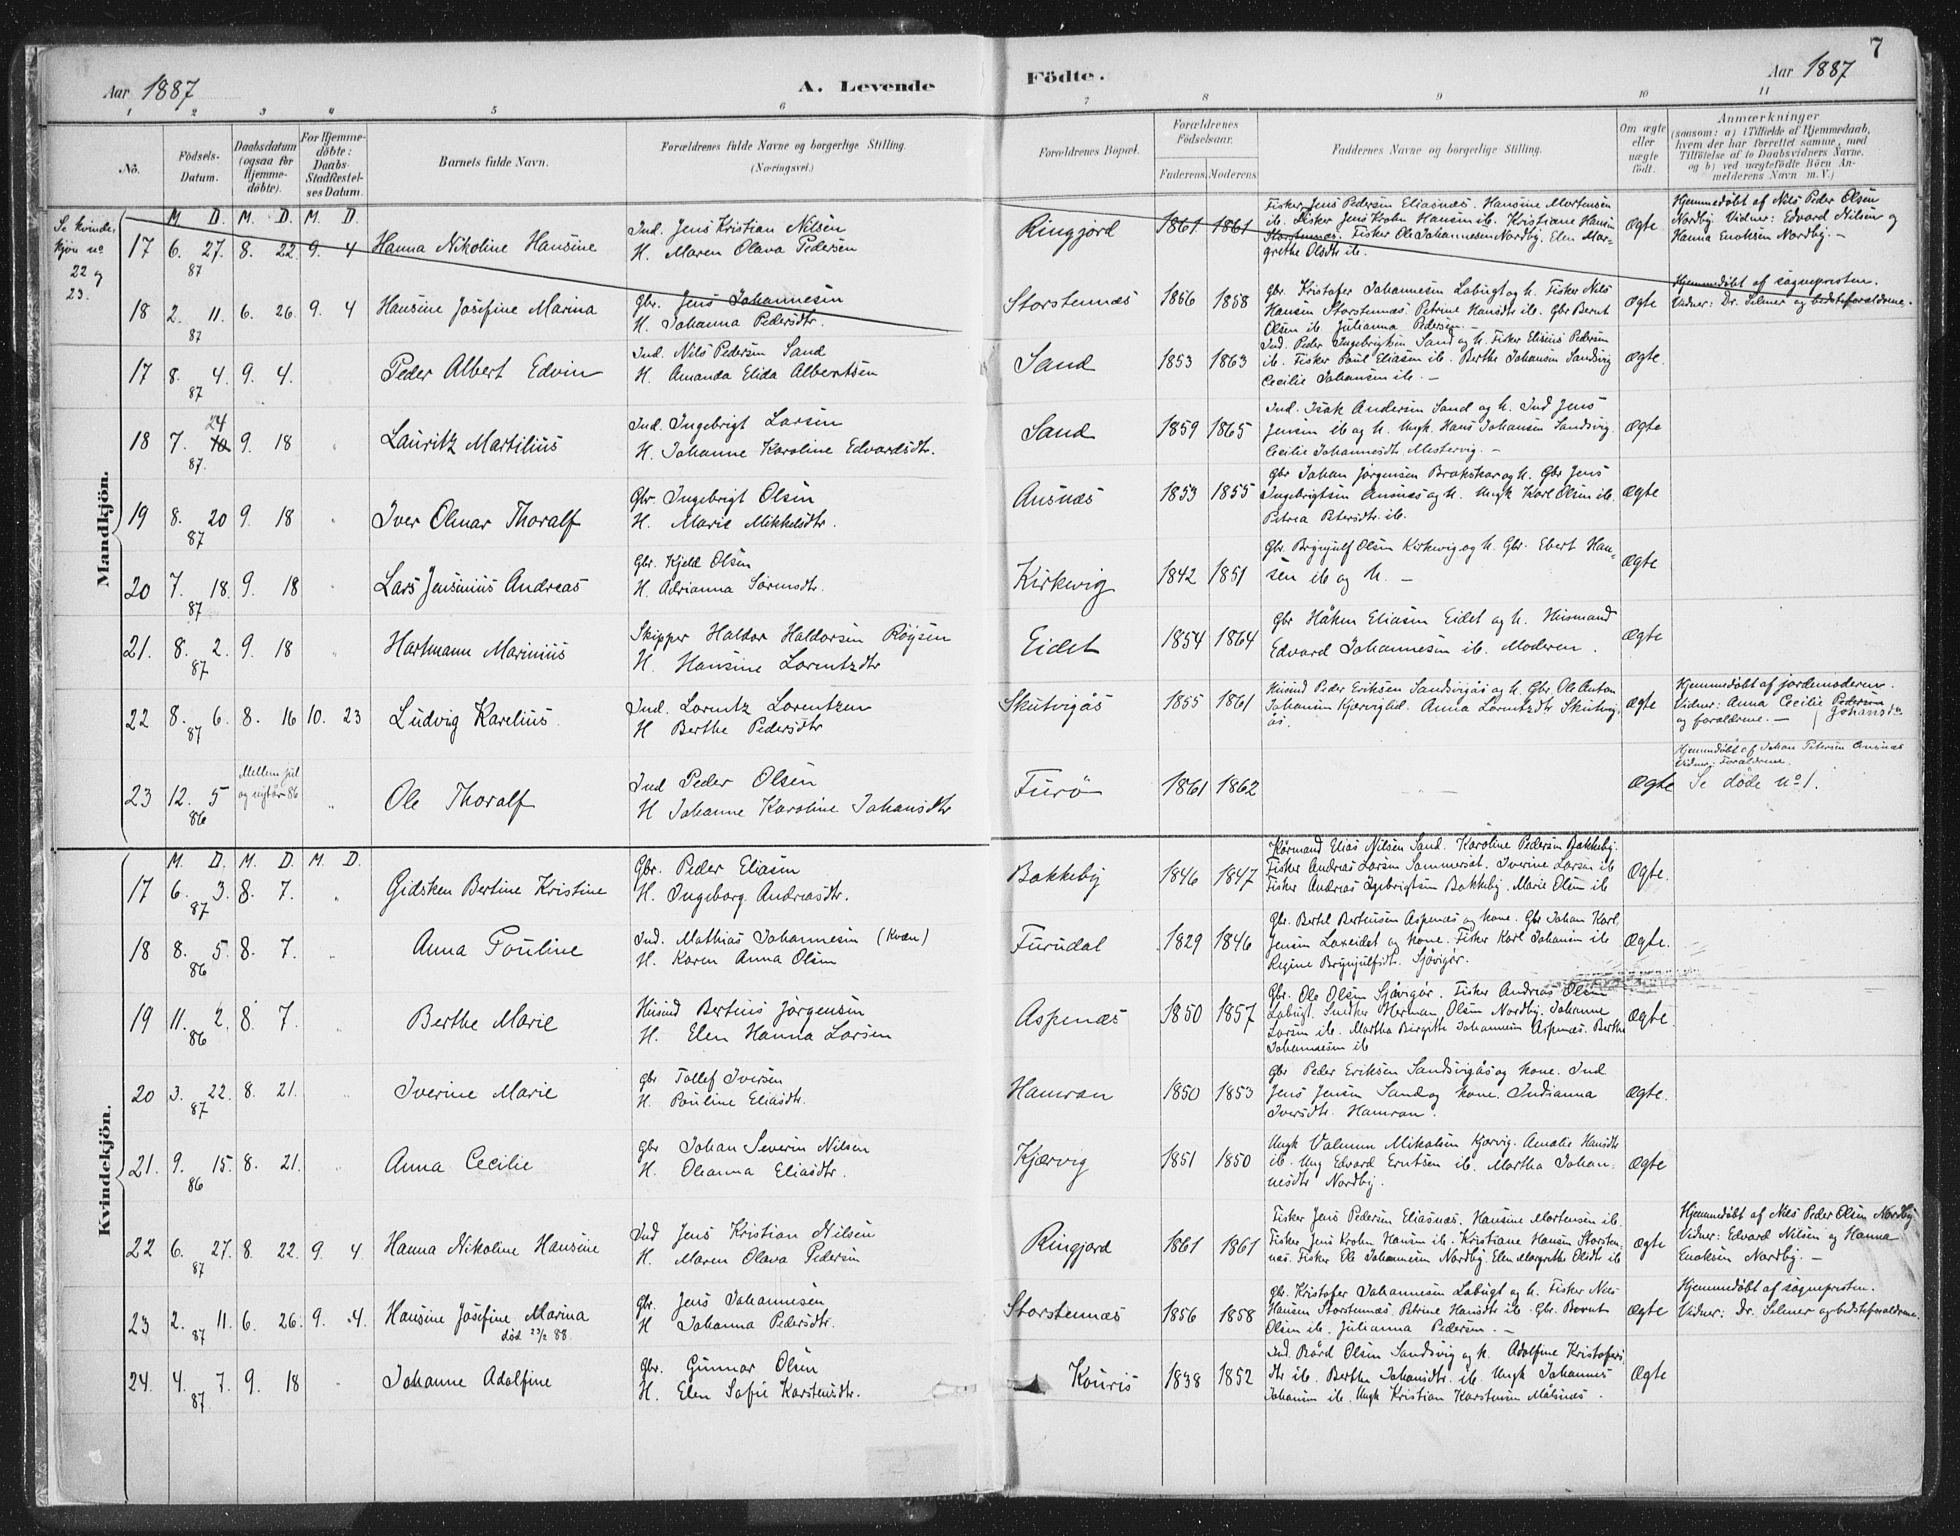 7
Aar 1887 A. Levende Födte. Aar 1887
1 2 3 4 5 6 7 8 9 10 11
No. Födsels-Datum. Daabsdatum (ogsaa for Hjemmedöbte). For Hjemmedöbte: Daabs-Stadfæstelses Datum. Barnets fulde Navn. Forældrenes fulde Navne og borgerlige Stilling. (Næringsvei.) Forældrenes Bopæl. Forældrenes Födselsaar. Faderens Moderens Faddernes Navne og borgerlige Stilling. Om ægte eller uægte födt. Anmærkninger (saasom: a) i Tilfælde af Hjemmedaab, hvem der har forrettet samme, med Tilföielse af to Daabsvidners Navne. og b) ved uægtefödte Börn Anmelderens Navn m. V.)
Mandkjön.
Se kvindekjön no 22 og 23.
M. D. M. D. M. D.
17 6. 27. 87 8. 22. 9. 4 Hanna Nikoline Hansine
Ind. Jens Kristian Nilsen
H. Maren Olava Pedersen
Ringjord 1861 1861
Fisker Jens Pedersen Eliasnæs. Hansine Mortensen
ib. Fisker Jens Krohn Hansen ib. Kristiane Hansen
Storstennæs. Fisker Ole Johannesen Nordby. Elen Mar-
grethe Olsdtr ib.
Ægte
Hjemmedöbt af Nils Peder Olsen
Nordby Vidner: Edvard Nilsen og
Hanna Enoksen Nordby. —
18 2. 11. 87 6. 26. 9. 4 Hansine Josefine Marina
Gbr. Jens Johannesen
H. Johanna Pedersdtr.
Storstennæs 1856 1858
Gbr. Kristofer Johannesen Labugt og h. Fisker Nils
Hansen Storstennæs. Petrine Hansdtr ib. Gbr Bernt
Olsen ib. Julianna Pedersen. —
Ægte
Hjemmedöbt af sognepresten.
Vidner: Dr. Selmer og bedsteforældrene.
17 8. 4. 87 9. 4. Peder Albert Edvin
Ind. Nils Pedersen Sand
H. Amanda Elida Albertsen
Sand 1853 1863
Ind. Peder Ingebrigtsen Sand og h. Fisker Elisius Pedersen
ib. Fisker Paul Eliasen ib. Berthe Johansen Sandvig
Cecilie Johansen ib. —
Ægte.
18 7. 24 87. 9. 18 Lauritz Martilius
Ind. Ingebrigt Larsen
H. Johanne Karoline Edvardsdtr.
Sand 1859 1865
Ind. Isak Andersen Sand og h. Ind Jens
Jensen ib og h. Ungk. Hans Johansen Sandsvig.
Cecilie Johannesdtr Mestervig. —
Ægte
19 8. 20 87 9. 18 Iver Olmar Thoralf
Gbr. Ingebrigt Olsen
H. Marie Mikkelsdtr.
Ansnæs 1853 1855
Gbr Johan Jørgensen Brokskar og h. Gbr Jens
Ingebrigtsen Ansnæs og h. Ungk Karl Olsen ib.
Petrea Petersdtr. ib.
Ægte
20 7. 18. 87 9. 18 Lars Jensinius Andreas
Gbr. Kjeld Olsen
H. Adrianna Sörensdtr.
Kirkevig 1842 1851
Gbr. Brynjulf Olsen Kirkevig og h. Gbr. Ebert Han-
sen ib og h. —
Ægte
21. 8. 2. 87 9. 18 Hartmann Marinius
Skipper Haldor Haldorsen Röysen
H. Hansine Lorentzdtr
Eidet 1854 1864
Gbr Håken Eliasen Eidet og h. Husmand
Edvard Johannesen ib. Moderen.
Ægte
22 8. 6. 87 8. 16 10. 23 Ludvig Karelius
Ind. Lorentz Lorentzen
H Berthe Pedersdtr
Skutvigås 1855 1861
Husmd Peder Eriksen Sandsvigås og h. Gbr. Ole Anton
Johansen Kjærvig ib. Anna Lorentzdtr Skutvig-
ås.
Ægte
Hjemmedöbt af jordemoderen.
Vidner: Anna Cecilie Pedersen
og forældrene. — Johansdtr
23 12. 5 86 Mellem jul og nytår 86 Ole Thoralf
Ind Peder Olsen
H Johanne Karoline Johansdtr
Furö 1861 1862 Ægte
Hjemmedöbt af Johan Petersen Ansnæs
Vidner: Forældrene.
Se döde no 1.
Kvindekjön.
M. D. M. D. M. D.
17 6. 3. 87 8. 7. Gidsken Bertine Kristine
Gbr. Peder Eliasen
H. Ingeborg Andreasdtr.
Bakkeby 1846 1847
Kårmand Elias Nilsen Sand. Karoline Pedersen Bakkeby.
Fisker Andreas Larsen Sammersæt. Iverine Larsen ib
Fisker Andreas Igebrigtsen Bakkeby. Marie Olsen ib
Ægte.
18 8. 5. 86 8. 7. Anna Pouline
Ind. Mathias Johannesen (Kvæn)
H. Karen Anna Olsen
Furudal 1829 1846
Gbr. Bertel Bertensen Aspenæs og kone. Gbr Johan Karl
Jensen Laxeidet og kone. Fisker Karl Johansen ib
Regine Brynjulfsdtr. Sjövigår.
Ægte.
19 11. 2. 86 8. 7. Berthe Marie
Husmd Bertius Jørgensen
H. Elen Hanna Larsen
Aspenæs 1850 1857
Gbr. Ole Olsen Sjåvigår. Fisker Andreas Olsen
Labugt. Snedker Herman Olsen Nordby. Johanne
Larsen ib. Martha Birgitte Johannesen Aspenæs. Berthe
Johannesen ib
Ægte.
20 3. 22. 87 8. 21. Iverine Marie
Gbr Tollef Iversen
H. Pouline Eliasdtr.
Hamran 1850 1853
Gbr Peder Eriksen Sandsvigås og kone. Ind
Jens Jensen Sand og kone. Indianna
Iversdtr. Hamran.
Ægte.
21. 9. 15. 86 8. 21. Anna Cecilie
Gbr Johan Severin Nilsen
H. Oleanna Eliasdtr.
Kjærvig 1851 1850
Ungk Mikalsen Kjærvig. Amalie Hansdtr
ib. Ung Edvard Erntsen ib. Martha Johan-
nesdtr Nordby.
Ægte
22 6. 27. 87 8. 22 9. 4. Hanna Nikoline Hansine
Ind Jens Kristian Nilsen
H. Maren Olava Pedersen
Ringjord 1861 1861
Fisker Jens Pedersen Eliasnæs. Hansine Mortensen ib.
Fisker Jens Krohn Hansen ib. Kristiane Hansen Storsten-
næs. Fisker Ole Johannesen Nordby. Elen Margrethe Olsdtr ib
Ægte
Hjemmedöbt af Nils Peder Olsen Nordby
Vidner: Edvard Nilsen og Hanna
Enoksen Nordby. —
23 2. 11. 87 6. 26. 9. 4. Hansine Josefine Marina
död 23/2 88.
Gbr. Jens Johannesen
H Johanna Pedersdtr.
Storstennæs 1856 1858
Gbr. Kristofer Johannesen Labugt og h. Fisker Nils
Hansen Storstennæs. Petrine Hansdtr ib. Gbr. Bernt
Olsen ib. Julianna Pedersen. —
Ægte
Hjemmedöbt af sognepresten.
Vidner: Dr. Selmer og bedsteforældrene.
24. 4. 7. 87 9. 18 Johanne Adolfine
Gbr. Gunnar Olsen
H. Elen Sofie Karstensdtr.
Kouris 1838 1852
Ind. Bård Olsen Sandsvig og h. Adolfine Kristofers
dtr ib. Berthe Johansdtr. ib. Ungk Johannes
Johansen ib. Ungk Kristian Karstensen Målsnæs.
Ægte